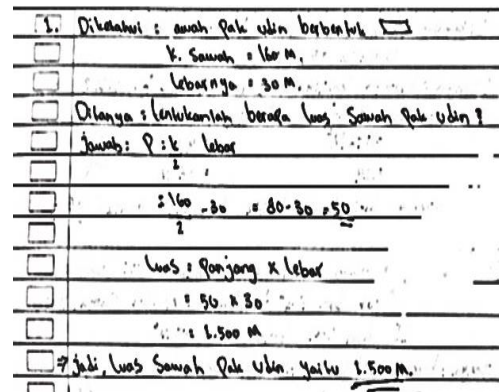 1. Diketahui : awah Pak udin berbentuk
k. Sawah = 160 M.
lebarnya = 30 M.
Ditanya : tentukanlah berapa luas Sawah Pak udin ?
Jawab : P : k lebar
2
: 160 - 30 = 80 - 30 = 50
2
Luas : Panjang x lebar
: 50 x 30
: 1.500 M
⇒ jadi, luas Sawah Pak Udin yaitu 1.500 M.